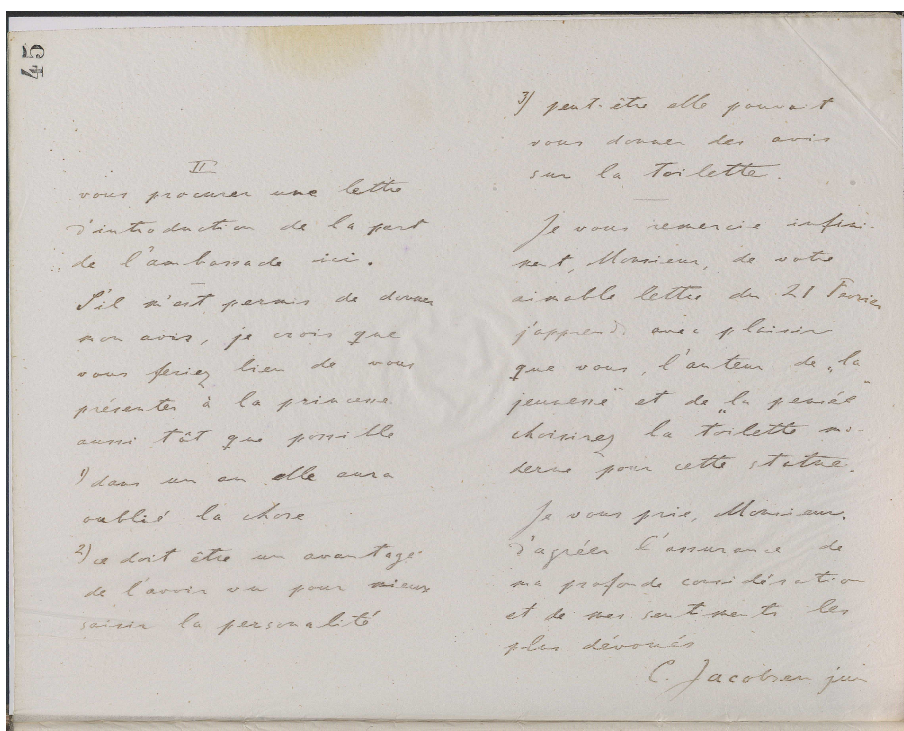 45
II
vous procurer une lettre
d'introduction de la part
de l'ambassade ici.
S'il m'est permis de donner
mon avis, je crois que
vous feriez bien de vous
présenter à la princesse
aussi tôt que possible
1) dans un an elle aura
oublié la chose
2) ce doit être un avantage
de l'avoir vu pour mieux
saisir la personalité
3) peut-être elle pourrait
vous donner des avis
sur la toilette.
Je vous remercie infini-
ment, Monsieur, de votre
aimable lettre du 21 Fevrier
j'apprends avec plaisir
que vous, l'auteur de „la
jeunesse" et de „la pensée"
choisirez la toilette mo-
derne pour cette statue.
Je vous prie, Monsieur,
d'agréer l'assurance de
ma profonde considération
et de mes sentiments les
plus dévoués
C. Jacobsen jun